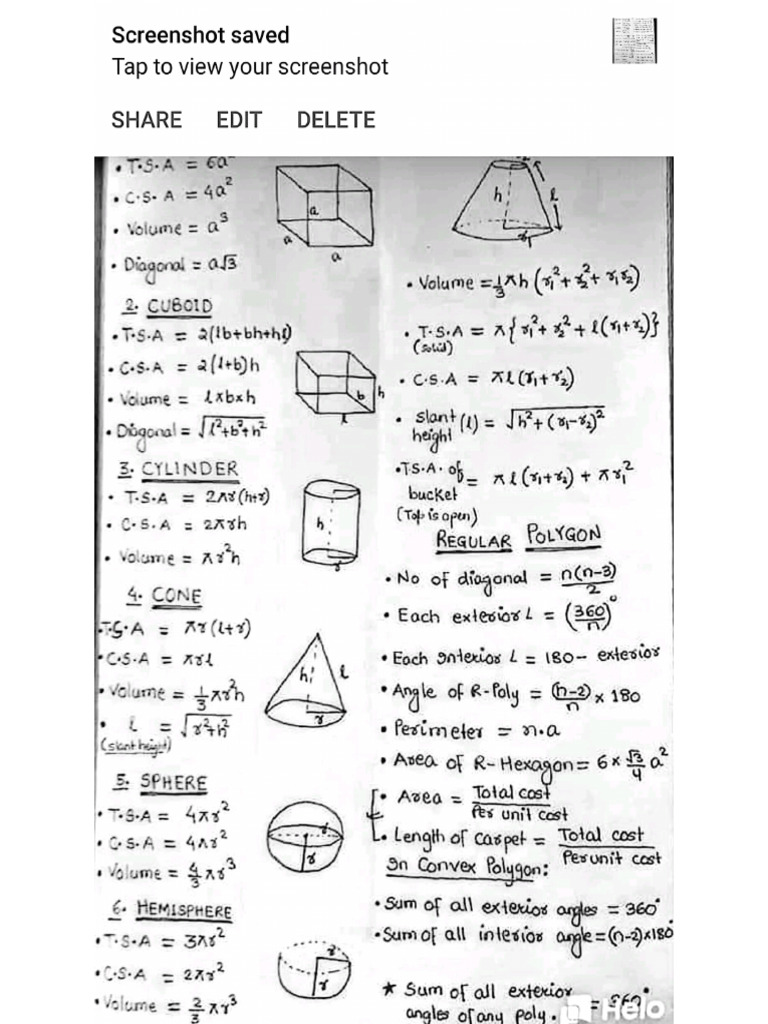 Screenshot saved
Tap to view your screenshot
SHARE EDIT DELETE
• T.S.A = 6a
• C.S. A = 4a²
• Volume = a³
• Diagonal = a√3
a
a
a
2. CUBOID
• T.S.A = 2(lb+bh+hl)
• C.S.A = 2(l+b)h
• Volume = l×b×h
• Diagonal = √l²+b²+h²
h
b
l
3. CYLINDER
• T.S.A = 2πr(h+r)
• C.S.A = 2πrh
• Volume = πr²h
h
r
4. CONE
• T.S.A = πr(l+r)
• C.S.A = πrl
• Volume = 1/3 πr²h
• l = √r²+h²
(slant height)
h
l
r
5. SPHERE
• T.S.A = 4πr²
• C.S.A = 4πr²
• Volume = 4/3 πr³
r
r
6. HEMISPHERE
• T.S.A = 3πr²
• C.S.A = 2πr²
• Volume = 2/3 πr³
r
r
h
l
r₁
• Volume = 1/3 πh (r₁²+r₂²+r₁r₂)
• T.S.A = π{r₁²+r₂²+l(r₁+r₂)}
(solid)
• C.S.A = πl(r₁+r₂)
• slant height (l) = √h²+(r₁-r₂)²
• T.S.A. of bucket = πl(r₁+r₂) + πr₁²
(Top is open)
REGULAR POLYGON
• No of diagonal = n(n-3)/2
• Each exterior L = (360/n)°
• Each Interior L = 180 - exterior
• Angle of R-Poly = (n-2)/n × 180
• Perimeter = n.a
• Area of R-Hexagon = 6 × √3/4 a²
• Area = Total cost/Per unit cost
• Length of carpet = Total cost/Per unit cost
In Convex Polygon:
• Sum of all exterior angles = 360°
• Sum of all interior angle = (n-2)×180°
★ Sum of all exterior
angles of any poly. = 360°
Helo